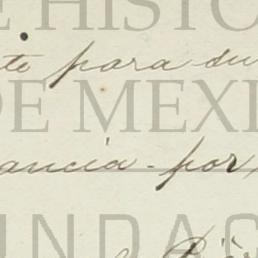 E HISTO
te para du
DE MEXI
ancia - por
UNDAC